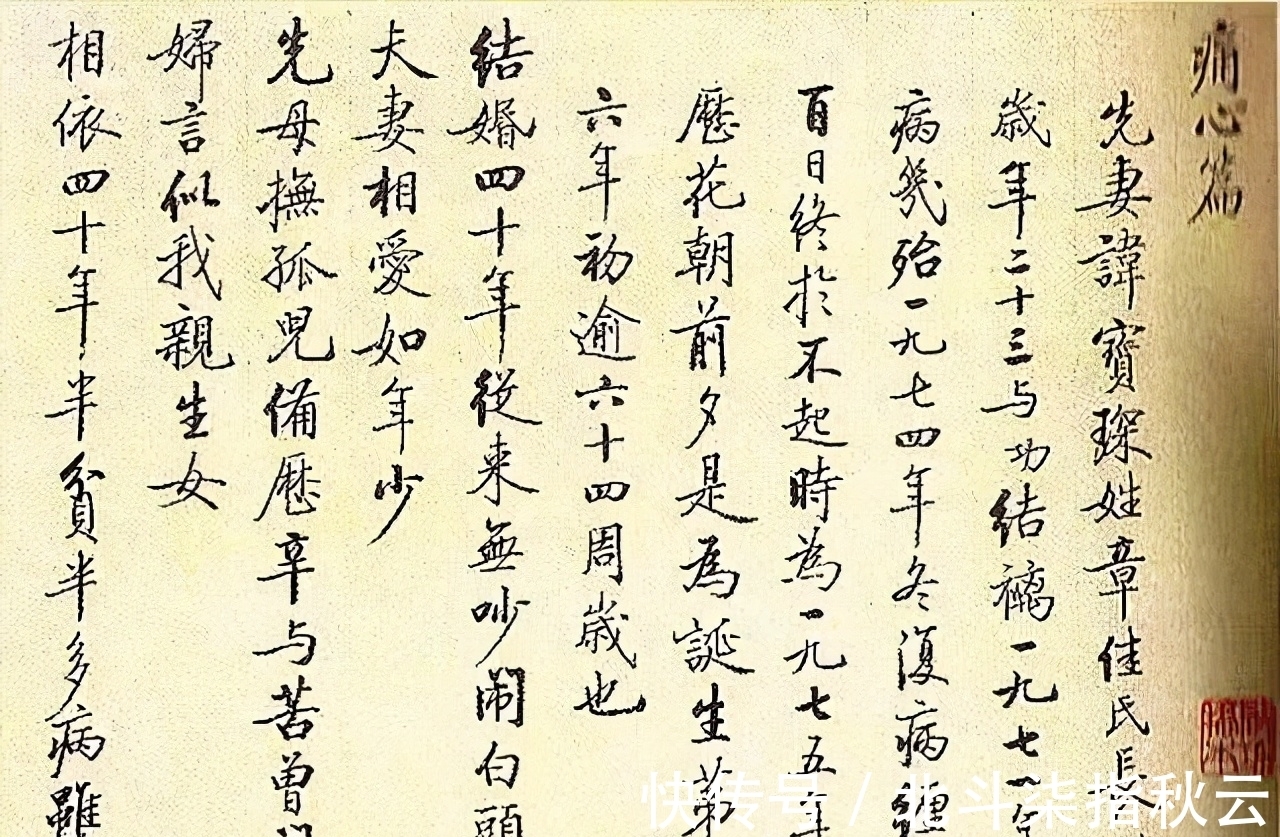 痛心篇
先妻諱寶琛姓章佳氏長
歲年二十三与功結褵一九七一年
病幾殆一九七四年冬復病纏
百日終於不起時為一九七五年
歷花朝前夕是為誕生第
六年初逾六十四周歲也
結婚四十年從來無吵鬧白頭
夫妻相愛如年少
先母撫孤兒備歷辛与苦曾
婦言似我親生女
相依四十年半貧半多病雖
快传号 / 北斗柒指秋云